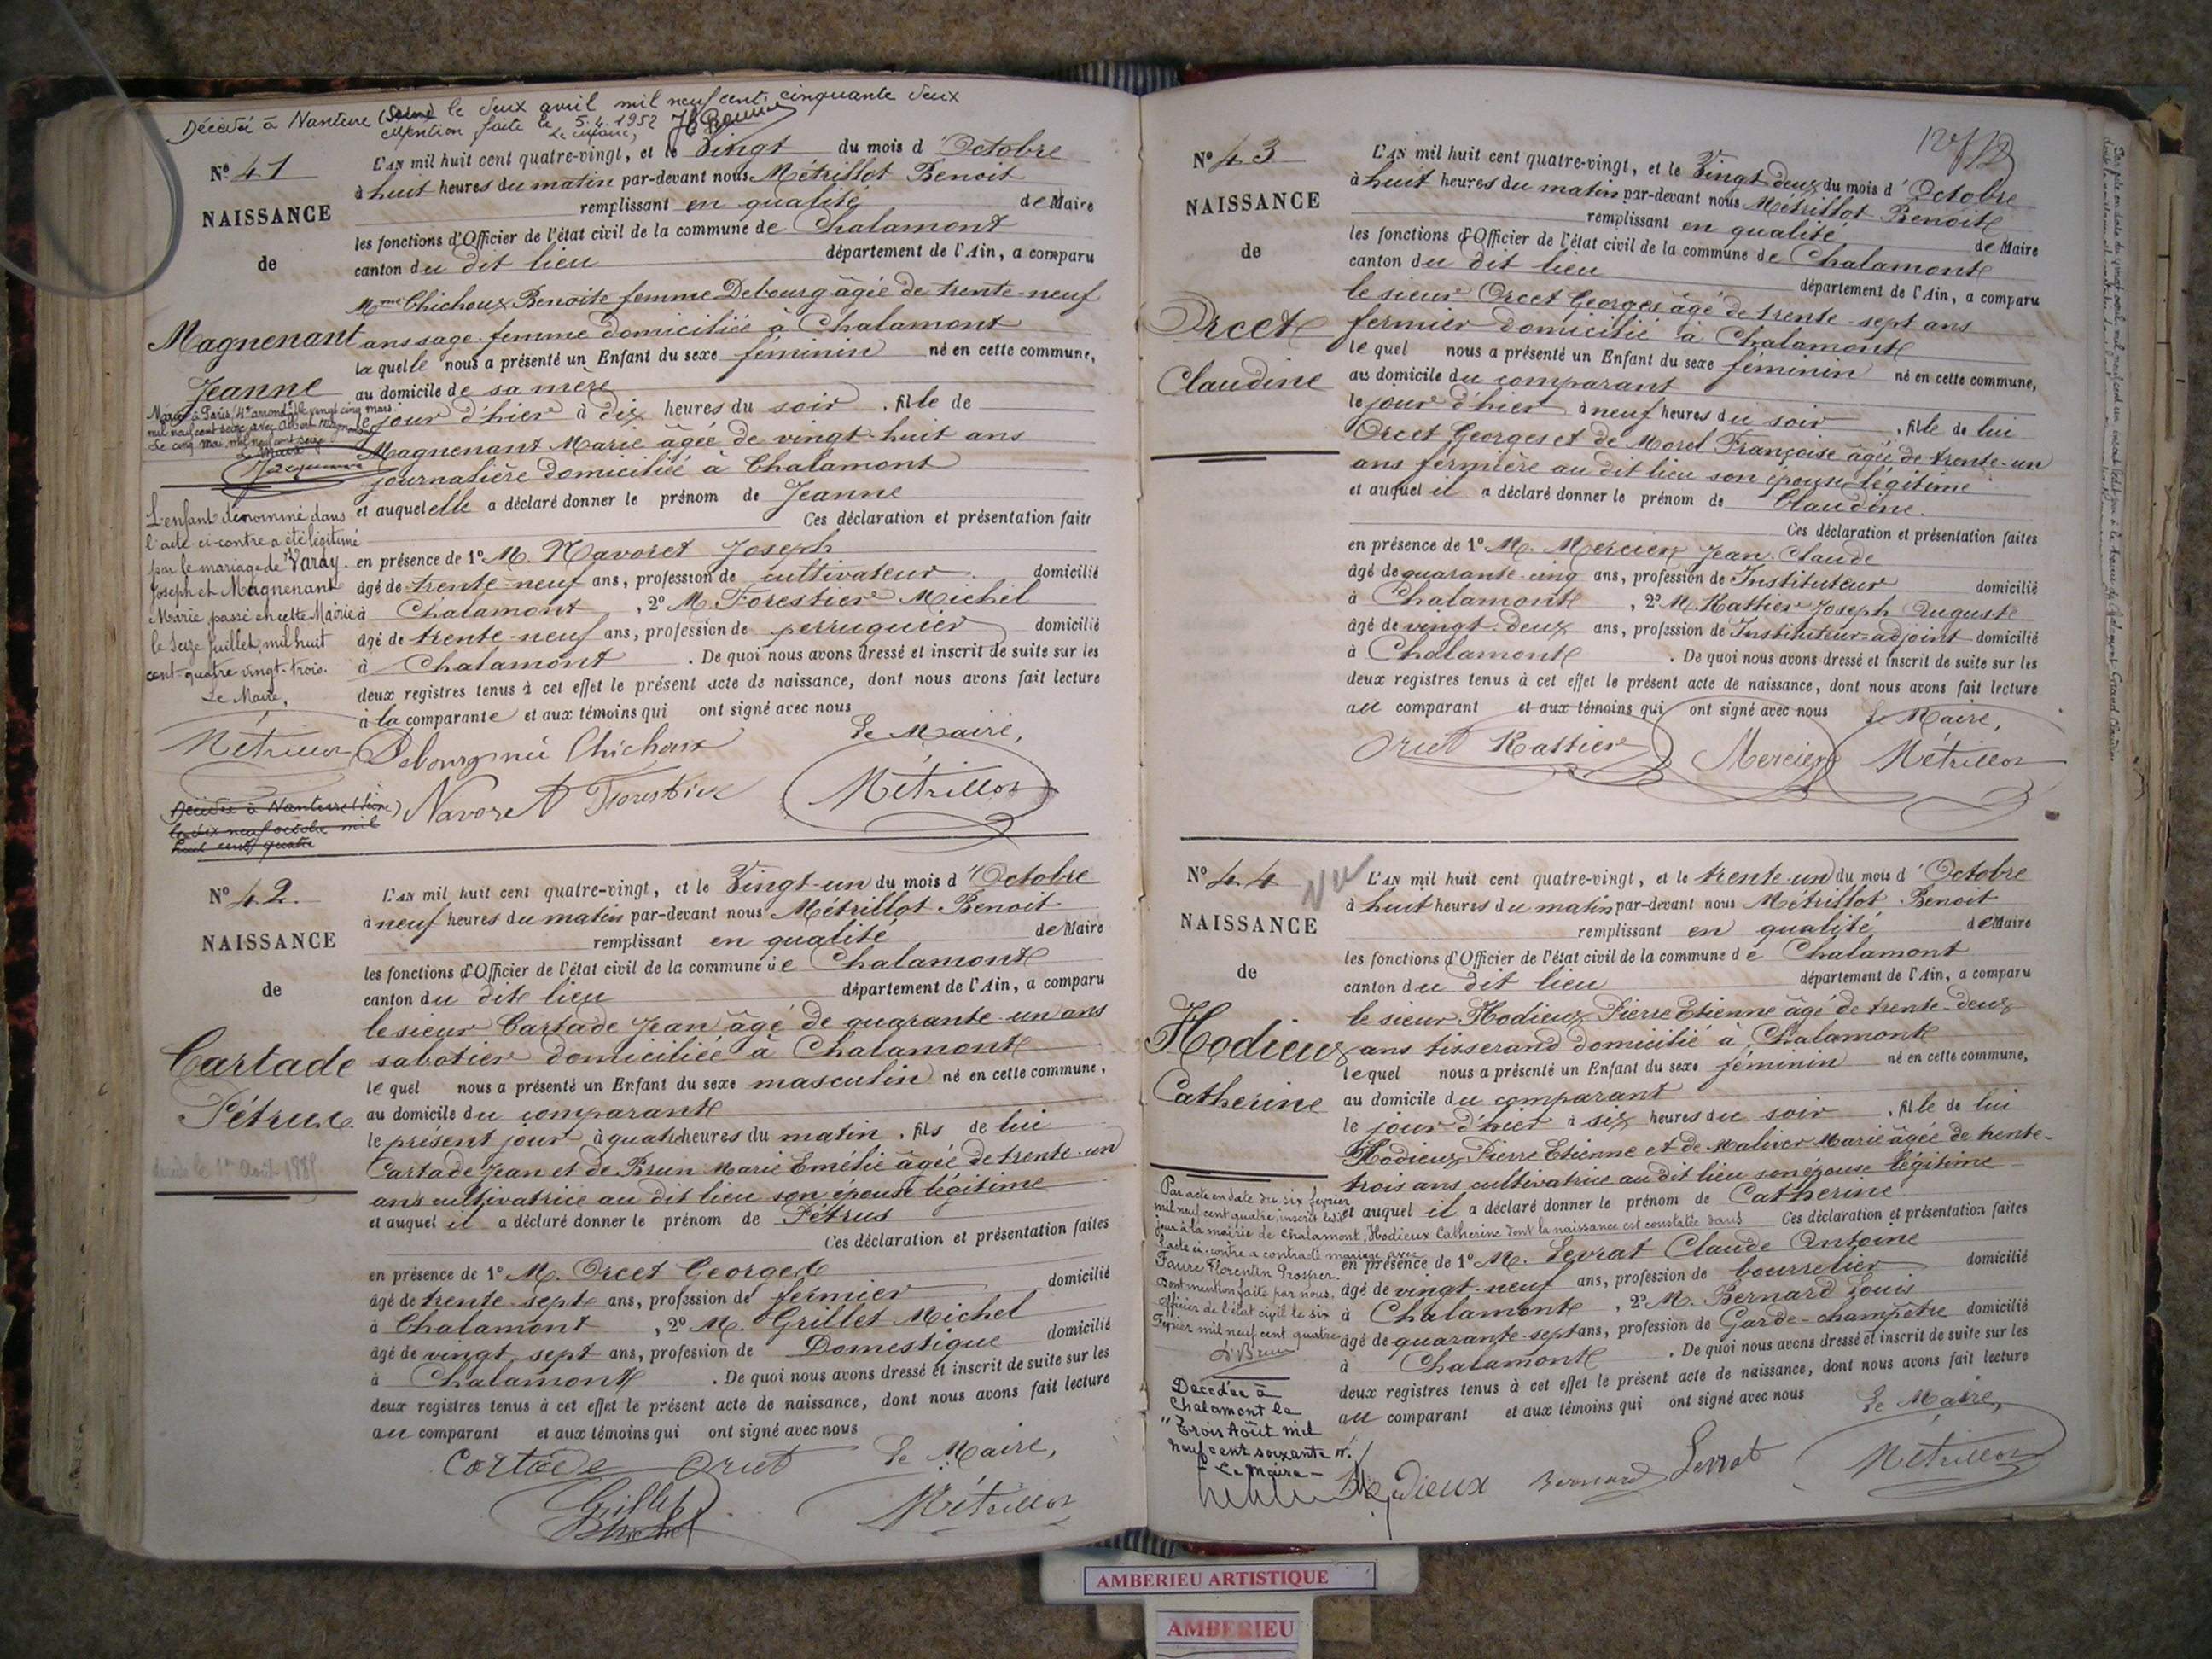 Décédée à Nanterre (Seine) le deux avril mil neuf cent cinquante deux
mention faite le 5.4.1952
Le Maire,
N° 41
NAISSANCE
de
Magnenant
Jeanne
Mariée à Paris (4e arrondt) le vingt cinq mars
mil neuf cent seize avec Albert
Le cinq mai mil neuf cent seize
Le Maire
L'enfant dénommé dans
l'acte ci-contre a été légitimé
par le mariage de Varay
Joseph et Magnenant
Marie passé en cette Mairie
le seize Juillet mil huit
cent quatre vingt-trois.
Le Maire,
Métrillot
Décédée à Nanterre (Seine)
le dix neuf octobre mil
huit cent quatre
L'AN mil huit cent quatre-vingt, et le Vingt du mois d'Octobre
à huit heures du matin par-devant nous Métrillot Benoit
remplissant en qualité de Maire
les fonctions d'Officier de l'état civil de la commune de Chalamont
canton du dit lieu département de l'Ain, a comparu
Mme Chichoux Benoite femme Debourg âgée de trente-neuf
ans sage-femme domiciliée à Chalamont
laquelle nous a présenté un Enfant du sexe féminin né en cette commune,
au domicile de sa mère
le jour d'hier à dix heures du soir, fille de
Magnenant Marie âgée de vingt-huit ans
journalière domiciliée à Chalamont
et auquel elle a déclaré donner le prénom de Jeanne
Ces déclaration et présentation faites
en présence de 1° M. Navoret Joseph
âgé de trente-neuf ans, profession de cultivateur domicilié
à Chalamont, 2° M. Forestier Michel
âgé de trente-neuf ans, profession de perruquier domicilié
à Chalamont. De quoi nous avons dressé et inscrit de suite sur les
deux registres tenus à cet effet le présent acte de naissance, dont nous avons fait lecture
à la comparante et aux témoins qui ont signé avec nous
Le Maire,
Debourg née Chichoux
Navoret Forestier Métrillot
N° 42.
NAISSANCE
de
Cartade
Pétrus
décédé le 1er Août 1889
L'AN mil huit cent quatre-vingt, et le Vingt-un du mois d'Octobre
à neuf heures du matin par-devant nous Métrillot Benoit
remplissant en qualité de Maire
les fonctions d'Officier de l'état civil de la commune de Chalamont
canton du dit lieu département de l'Ain, a comparu
le sieur Cartade Jean âgé de quarante-un ans
sabotier domiciliée à Chalamont
lequel nous a présenté un Enfant du sexe masculin né en cette commune,
au domicile du comparant
le présent jour à quatre heures du matin, fils de lui
Cartade Jean et de Brun Marie Emélie âgée de trente-un
ans cultivatrice au dit lieu son épouse légitime
et auquel il a déclaré donner le prénom de Pétrus
Ces déclaration et présentation faites
en présence de 1° M. Orcet Georges
âgé de trente-sept ans, profession de fermier domicilié
à Chalamont, 2° M. Grillet Michel
âgé de vingt sept ans, profession de Domestique domicilié
à Chalamont. De quoi nous avons dressé et inscrit de suite sur les
deux registres tenus à cet effet le présent acte de naissance, dont nous avons fait lecture
au comparant et aux témoins qui ont signé avec nous
Le Maire,
Cartade Orcet
Grillet Michel
Métrillot
N° 43
NAISSANCE
de
Orcet
Claudine
L'AN mil huit cent quatre-vingt, et le Vingt deux du mois d'Octobre
à huit heures du matin par-devant nous Métrillot Benoit
remplissant en qualité de Maire
les fonctions d'Officier de l'état civil de la commune de Chalamont
canton du dit lieu département de l'Ain, a comparu
le sieur Orcet Georges âgé de trente-sept ans
fermier domicilié à Chalamont
lequel nous a présenté un Enfant du sexe féminin né en cette commune,
au domicile du comparant
le jour d'hier à neuf heures du soir, fille de lui
Orcet Georges et de Morel Françoise âgée de trente-un
ans fermière au dit lieu son épouse légitime
et auquel il a déclaré donner le prénom de Claudine.
Ces déclaration et présentation faites
en présence de 1° M. Mercier Jean Claude
âgé de quarante-cinq ans, profession de Instituteur domicilié
à Chalamont, 2° M. Rattier Joseph Auguste
âgé de vingt-deux ans, profession de Instituteur-adjoint domicilié
à Chalamont. De quoi nous avons dressé et inscrit de suite sur les
deux registres tenus à cet effet le présent acte de naissance, dont nous avons fait lecture
au comparant et aux témoins qui ont signé avec nous
Le Maire,
Orcet Rattier Mercier Métrillot
N° 44
Vu
NAISSANCE
de
Hodieux
Catherine
L'AN mil huit cent quatre-vingt, et le trente-un du mois d'Octobre
à huit heures du matin par-devant nous Métrillot Benoit
remplissant en qualité de Maire
les fonctions d'Officier de l'état civil de la commune de Chalamont
canton du dit lieu département de l'Ain, a comparu
le sieur Hodieux Pierre Etienne âgé de trente-deux
ans tisserand domicilié à Chalamont
lequel nous a présenté un Enfant du sexe féminin né en cette commune,
au domicile du comparant
le jour d'hier à six heures du soir, fille de lui
Hodieux Pierre Etienne et de Maliver Marie âgée de trente-
trois ans cultivatrice au dit lieu son épouse légitime
et auquel il a déclaré donner le prénom de Catherine
Ces déclaration et présentation faites
en présence de 1° M. Levrat Claude Antoine
âgé de vingt-neuf ans, profession de bourrelier domicilié
à Chalamont, 2° M. Bernard Louis
âgé de quarante-sept ans, profession de Garde-champêtre domicilié
à Chalamont. De quoi nous avons dressé et inscrit de suite sur les
deux registres tenus à cet effet le présent acte de naissance, dont nous avons fait lecture
au comparant et aux témoins qui ont signé avec nous
Le Maire,
Hodieux Bernard Levrat Métrillot
Par acte en date du six février
mil neuf cent quatre, inscrit ledit
jour à la mairie de Chalamont, Hodieux Catherine dont la naissance est constatée dans
l'acte ci-contre a contracté mariage avec
Faure Florentin Prosper.
Dont mention faite par nous,
officier de l'état civil le six
Février mil neuf cent quatre
Décédée à
Chalamont le
Trois Août mil
neuf cent soixante
Le Maire
AMBERIEU ARTISTIQUE
AMBERIEU